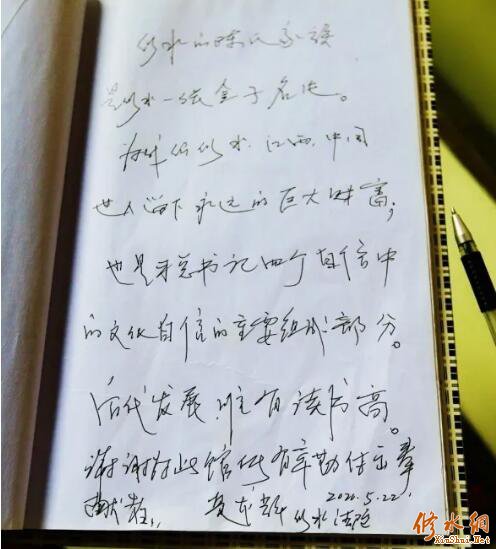 修水的陈氏家族
是修水一张金子名片。
为 修水、江西、中国
世人留下永远的巨大财富;
也是习总书记四个自信中
的文化自信的重要组成部分。
后代发展,唯有读书高。
谢谢 此馆 有辛勤
献者,
2020.5.22.
修水法院
修水网
XiuShui.Net